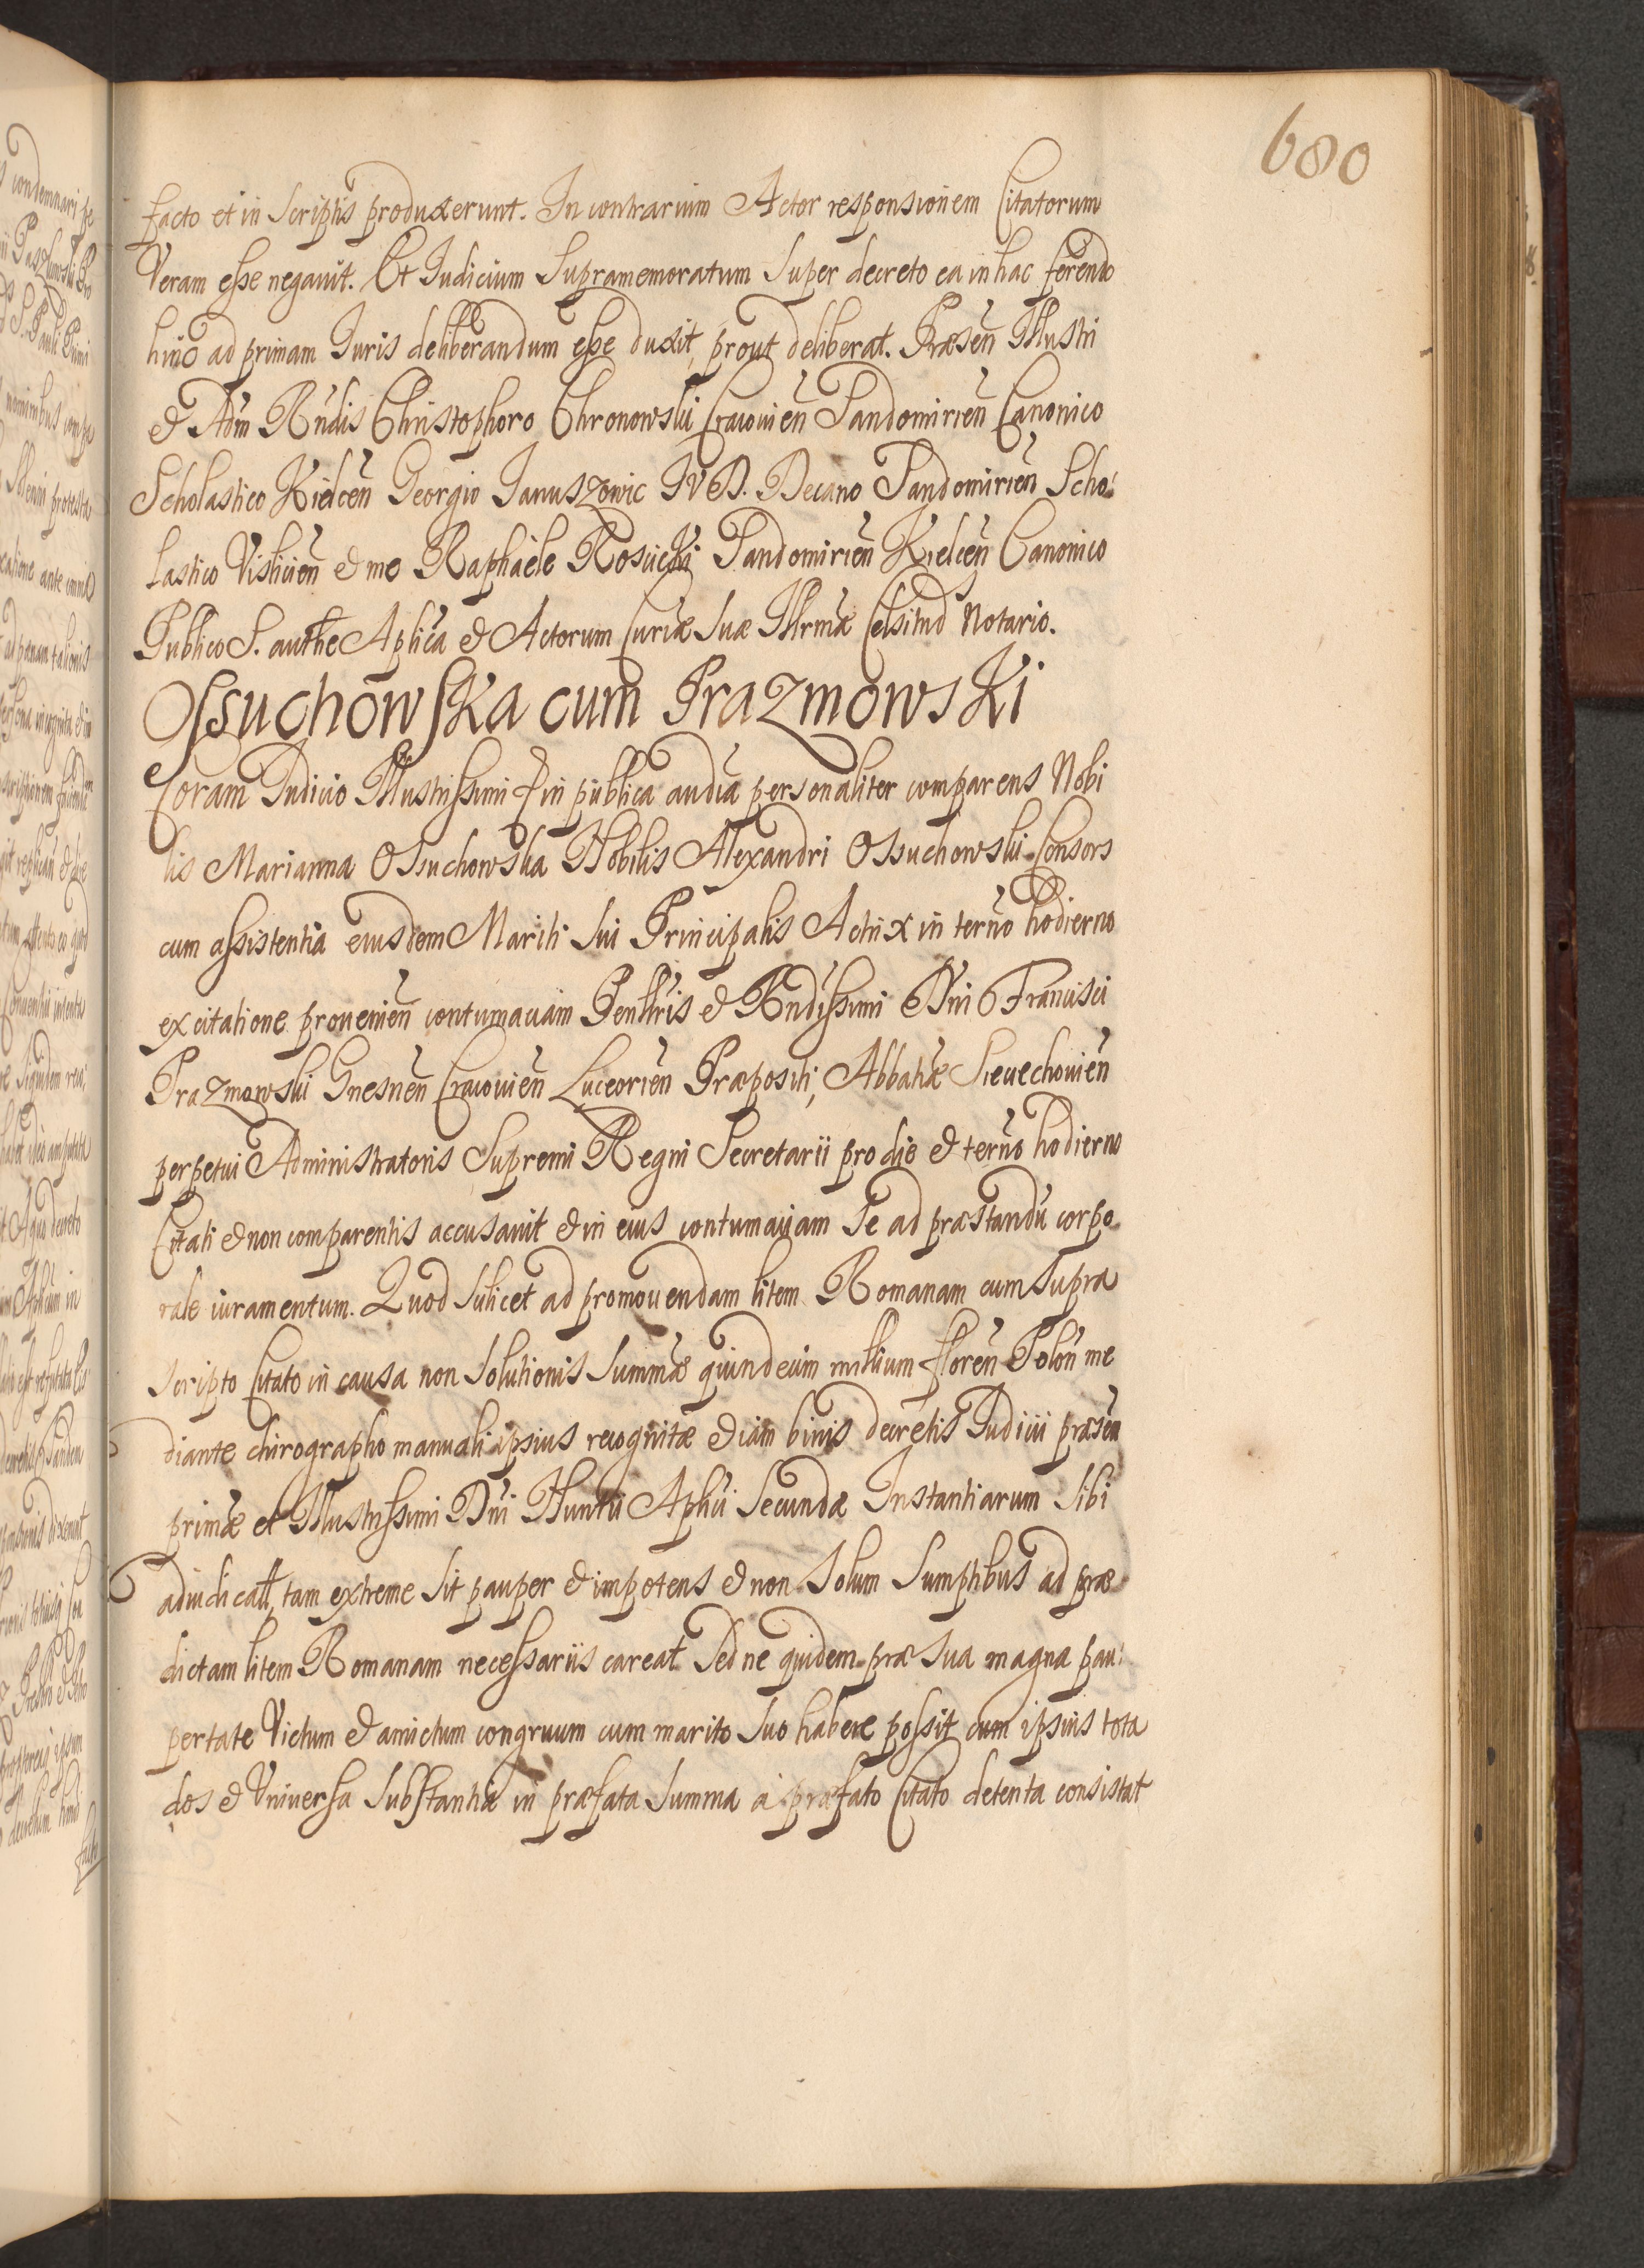 680
facto et in scriptis produxerunt. In contrarium Actor responsionem Citatorum
Veram esse negauit. Et Iudicium Supramemoratum super decreto ea in hac ferendo
hinc ad primam Iuris deliberandum esse duxit, prout deliberat. Præsen̄ Illustri
& Adm̄ Rn̄dis Christophoro Chronowski Cracouien̄ Sandomirien̄ Canonico
Scholastico Kielcen̄ Georgio Januszowic IVD. Decano Sandomirien̄ Scho:
lastico Vislicien̄ & me Raphaele Rosücki Sandomirien̄ Kielcen̄ Canonico
Publico S. authe Aplica & Actorum Curiæ suæ Illrmæ Celsitud Notario.
Ossuchowska cum Prazmowski
Coram Iudicio Illustrissimi & in publica audia personaliter comparens Nobi
lis Marianna Ossuchowska Nobilis Alexandri Ossuchowski Consors
cum assistentia eiusdem Mariti sui Principalis Actrix in terno hodierno
ex citatione prouenien̄ contumaciam Perillris & Rndissimi Dni Francisci
Prazmowski Gnesnen̄ Cracouien̄ Luceorien̄ Præpositi, Abbatiæ Sieciechouien̄
perpetui Administratoris Supremi Regni Secretarii pro die & terno hodierno
Citati & non comparentis accusauit & in eius contumaciam Se ad præstandū corpo
rale iuramentum. Quod scilicet ad promouendam litem Romanam cum supra
scripto Citato in causa non solutionis summæ quindecim millium floren̄ Polon̄ me
diante chirographo manuali ipsius recognitæ & iam binis decretis Iudicii præsen
primæ et Illustrissimi Dni Nuntii Aplici secundæ Instantiarum sibi
adiudicatt, tam extreme sit pauper & impotens & non solum sumptibus ad præ
dictam litem Romanam necessariis careat sed ne quidem præ sua magna pau:
pertate Victum & amictum congruum cum marito suo habere possit cum ipsius tota
dos & Vniuersa substantia in præfata summa à præfato Citato detenta consistat